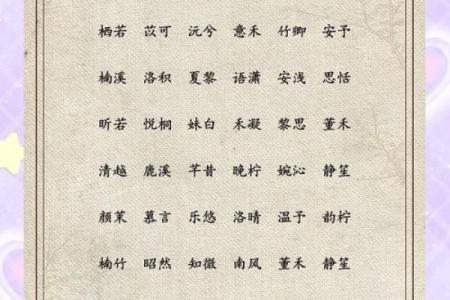 栖若 苡可 沅兮 意禾 竹卿 安予
楠溪 洛积 夏黎 语潇 安浅 思恬
昕若 悦桐 妹白 禾凝 黎思 董禾
清越 鹿溪 芊昔 晚柠 婉沁 静笙
颜茉 慕言 乐悠 洛晴 温予 韵柠
楠竹 昭然 知微 南风 董禾 静笙